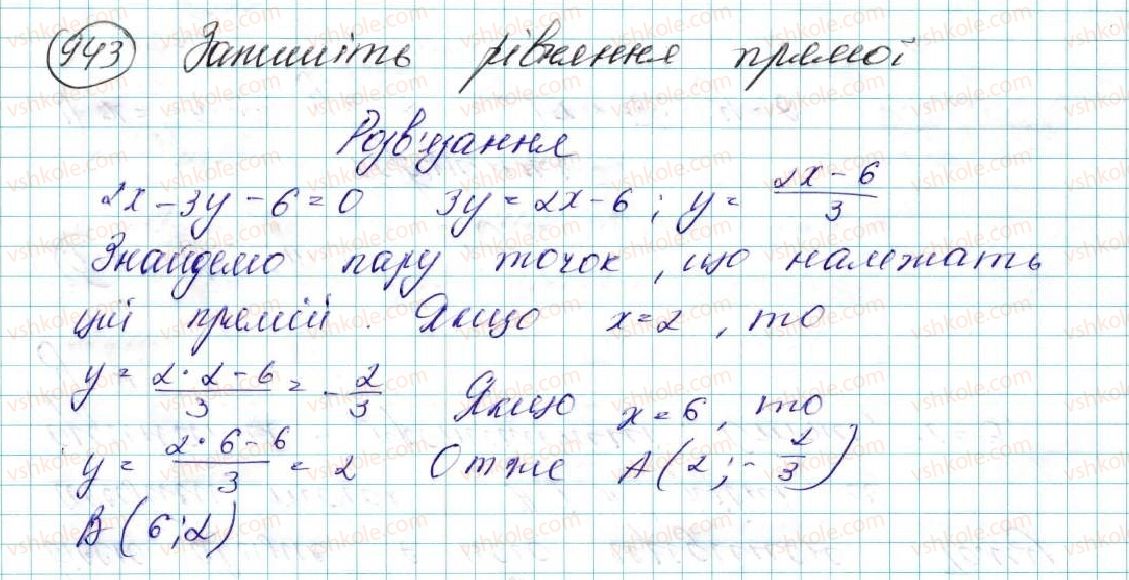 943 Запишіть рівняння прямої
Розв'язання
2x - 3y - 6 = 0 3y = 2x - 6 ; y = (2x - 6)/3
Знайдемо пару точок, що належать
цій прямій. Якщо x = 2, то
y = (2·2 - 6)/3 = -2/3 Якщо x = 6, то
y = (2·6 - 6)/3 = 2 Отже A(2; -2/3)
B(6; 2)